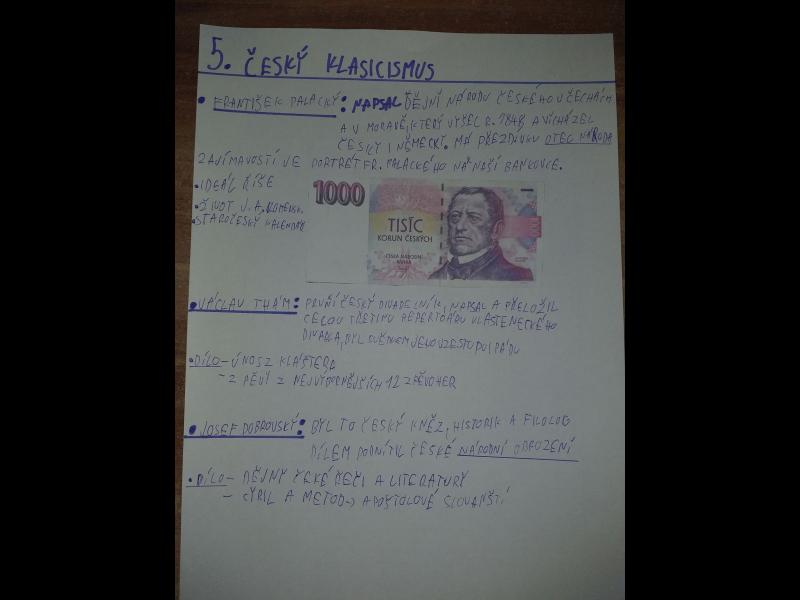 5. ČESKÝ KLASICISMUS
• FRANTIŠEK PALACKÝ: NAPSAL DĚJNÍ NÁRODU ČESKÉHO V ČECHÁCH
A V MORAVĚ, KTERÝ VYŠEL R. 1848 A VICHÁZEL
ČESKY I NĚMECKÝ. MÁ PŘEZDÍVKU OTEC NÁRODA
ZAJÍMAVOSTÍ JE PORTRÉT FR. PALACKÉHO NA NAŠÍ BANKOVCE.
• IDEÁL ŘÍŠE
• ŽIVOT J. A. KOMENSK.
• STAROČESKÝ KALENDÁŘ
1000
TISÍC
KORUN ČESKÝCH
ČESKÁ NÁRODNÍ
BANKA
• VÁCLAV THÁM: PRVNÍ ČESKÝ DIVADELNÍK, NAPSAL A PŘELOŽIL
CELOU TŘETINU REPERTOÁRU VLASTENECKÉHO
DIVADLA, BYL SVĚDKEM JEHO VZESTUPU I PÁDU
• DÍLO – ÚNOS Z KLÁŠTERA
– Z NEJVÝZNAMNĚJŠÍCH 12 ZPĚVOHER
• JOSEF DOBROVSKÝ: BYL TO ČESKÝ KNĚZ, HISTORIK A FILOLOG
DÍLEM PODNÍTIL ČESKÉ NÁRODNÍ OBROZENÍ
• DÍLO – DĚJNY ČEKÉ ŘEČI A LITERATURY
– CYRIL A METOD → APOŠTOLOVÉ SLOVANŠTÍ